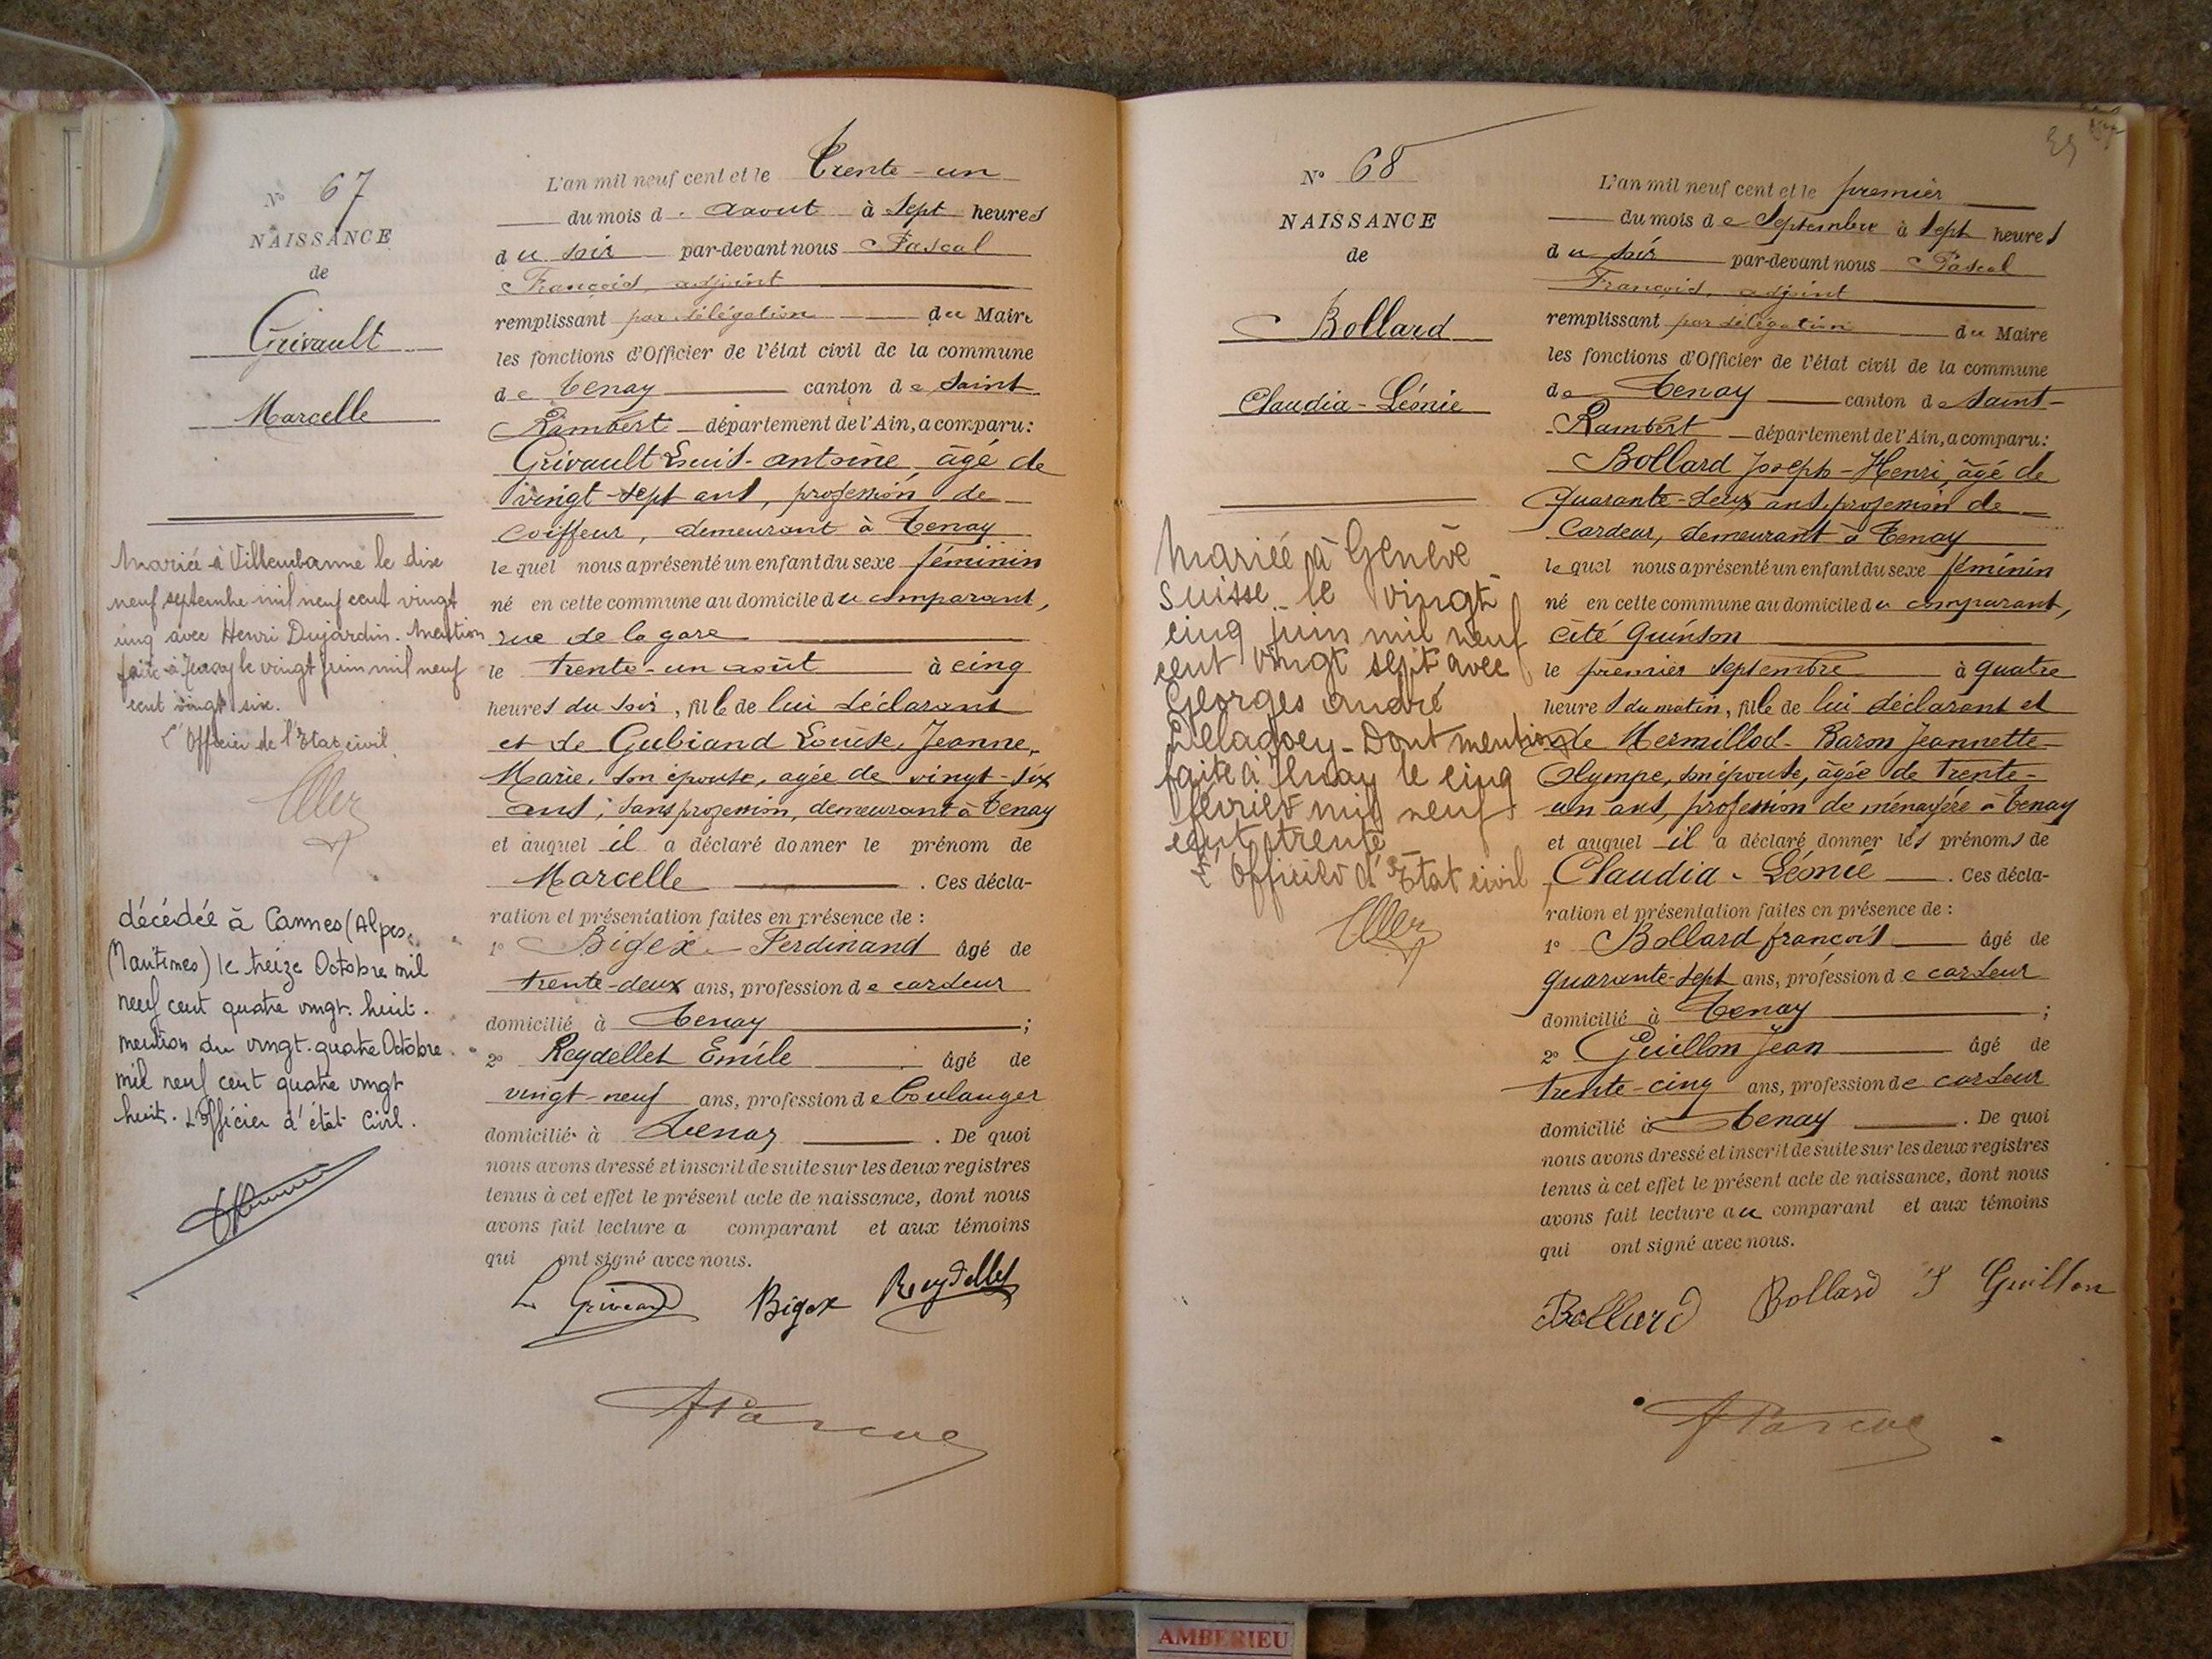 Nº 67
NAISSANCE
de
Grivault
Marcelle
Mariée à Villeurbanne le dix
neuf septembre mil neuf cent vingt
cinq avec Henri Dujardin. Mention
faite à Tenay le vingt juin mil neuf
cent vingt six.
L'Officier de l'Etat civil
décédée à Cannes (Alpes.
Maritimes) le treize Octobre mil
neuf cent quatre vingt. huit.
mention du vingt.quatre Octobre
mil neuf cent quatre vingt
huit. L'officier d'état Civil.
L'an mil neuf cent et le Trente-un
du mois d. aaout à Sept heures
du soir par-devant nous Pascal
François, adjoint
remplissant par délégation du Maire
les fonctions d'Officier de l'état civil de la commune
de Tenay canton de Saint
Rambert département de l'Ain, a comparu:
Grivault Louis-antoine âgé de
vingt-sept ans, profession de
coiffeur, demeurant à Tenay
lequel nous a présenté un enfant du sexe féminin
né en cette commune au domicile du comparant,
rue de la gare
le trente-un août à cinq
heures du soir, fille de lui déclarant
et de Gubiand Louise, Jeanne,
Marie, son épouse, agée de vingt-six
ans, sans profession, demeurant à Tenay
et auquel il a déclaré donner le prénom de
Marcelle. Ces décla-
ration et présentation faites en présence de :
1º Bigex Ferdinand âgé de
trente-deux ans, profession de cardeur
domicilié à Tenay ;
2º Reydellet Emile âgé de
vingt-neuf ans, profession de boulanger
domicilié à Tenay. De quoi
nous avons dressé et inscrit de suite sur les deux registres
tenus à cet effet le présent acte de naissance, dont nous
avons fait lecture a comparant et aux témoins
qui ont signé avec nous.
L Griveaud Bigex Reydellet
Nº 68
NAISSANCE
de
Bollard
Claudia-Léonie
Mariée à Genève
Suisse le vingt
cinq juin mil neuf
cent vingt sept avec
Georges andré
Dont mention
faite à Tenay le cinq
février mil neuf
cent trente
L'Officier d'Etat civil
L'an mil neuf cent et le premier
du mois de Septembre à Sept heures
du soir par-devant nous Pascal
François, adjoint
remplissant par délégation du Maire
les fonctions d'Officier de l'état civil de la commune
de Tenay canton de Saint-
Rambert département de l'Ain, a comparu:
Bollard Joseph-Henri, âgé de
quarante-deux ans, profession de
cardeur, demeurant à Tenay
lequel nous a présenté un enfant du sexe féminin
né en cette commune au domicile du comparant,
cité Quinson
le premier septembre à quatre
heures du matin, fille de lui déclarant et
de Mermillod-Baron Jeannette-
Olympe, son épouse, âgée de trente-
un ans, profession de ménagère à Tenay
et auquel il a déclaré donner les prénoms de
Claudia-Léonie. Ces décla-
ration et présentation faites en présence de :
1º Bollard françois âgé de
quarante-sept ans, profession de cardeur
domicilié à Tenay ;
2º Guillon Jean âgé de
trente-cinq ans, profession de cardeur
domicilié à Tenay. De quoi
nous avons dressé et inscrit de suite sur les deux registres
tenus à cet effet le présent acte de naissance, dont nous
avons fait lecture au comparant et aux témoins
qui ont signé avec nous.
Bollard Bollard J Guillon
AMBERIEU